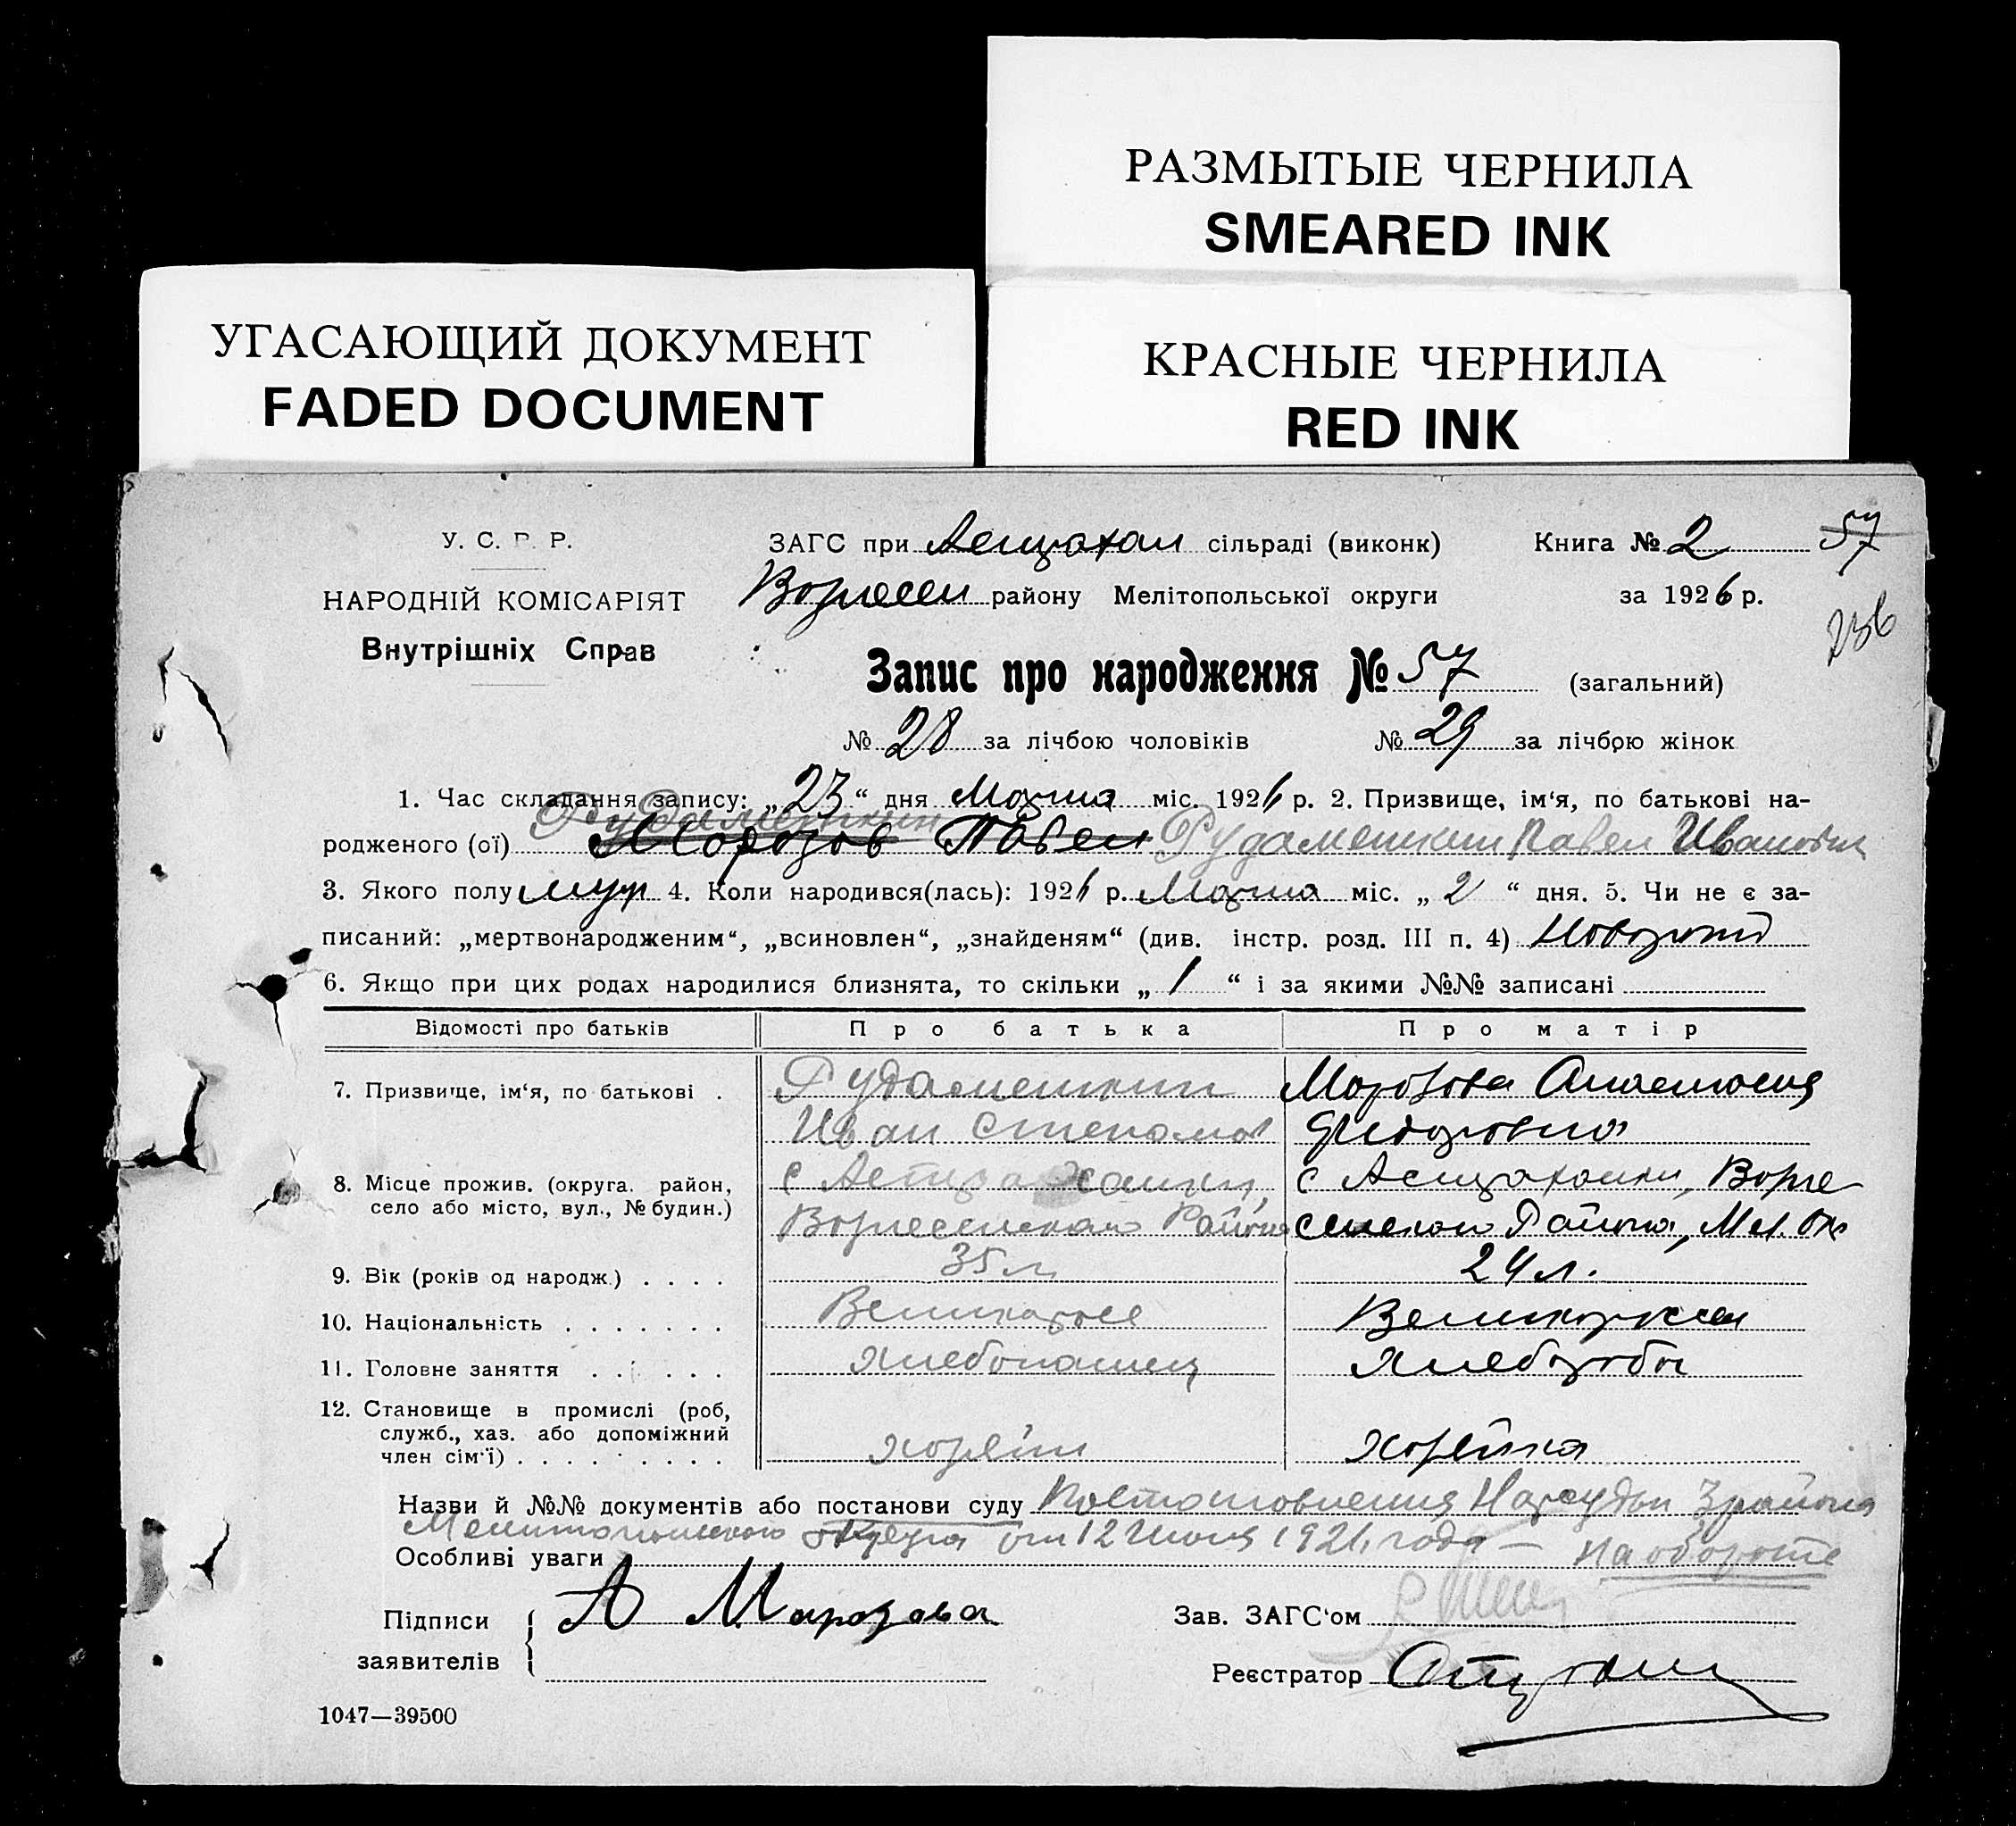 РАЗМЫТЫЕ ЧЕРНИЛА
SMEARED INK
УГАСАЮЩИЙ ДОКУМЕНТ
FADED DOCUMENT
КРАСНЫЕ ЧЕРНИЛА
RED INK
У. С. Р. Р.
НАРОДНІЙ КОМІСАРІЯТ
Внутрішніх Справ
ЗАГС при Астрахан сільраді (виконк) Книга № 2 57
Вознесен району Мелітопольської округи за 1926 р.
236
Запис про народження № 57 (загальний)
№ 28 за лічбою чоловіків № 29 за лічбою жінок
1. Час складання запису: „23“ дня Марта міс. 1926 р. 2. Призвище, ім‘я, по батькові на-
Рудаметкин
родженого (ої) Морозов Павел Рудаметкин Павел Иванович
3. Якого полу муж 4. Коли народився(лась): 1926 р. Марта міс. „ 2 “ дня. 5. Чи не є за-
писаний: „мертвонародженим“, „всиновлен“, „знайденям“ (див. інстр. розд. III п. 4)
6. Якщо при цих родах народилися близнята, то скільки „ 1 “ і за якими №№ записані
Відомості про батьків Про батька Про матір
7. Призвище, ім‘я, по батькові . Рудаметкин Морозова Анастасия
Иван Степанов Федоровна
8. Місце прожив. (округа. район, с Астраханки, с Астраханки, Возне-
село або місто, вул., № будин.) Вознесенского Района сенского Района, Мел. Окр
9. Вік (років од народж.) . . . . 35 л 24 л.
10. Національність . . . . . . . Великоросс Великоросска
11. Головне заняття . . . . . . Хлебопашец Хлебороб
12. Становище в промислі (роб,
служб., хаз. або допоміжний
член сім‘ї) . . . . . . . . . хозяин хозяйка
Назви й №№ документів або постанови суду Постановления Нарсудьи 3 района
Мелитопольского округа от 12 Июля 1926 года — на обороте
Особливі уваги
Підписи А Марозова Зав. ЗАГС‘ом
заявителів Реєстратор
1047—39500